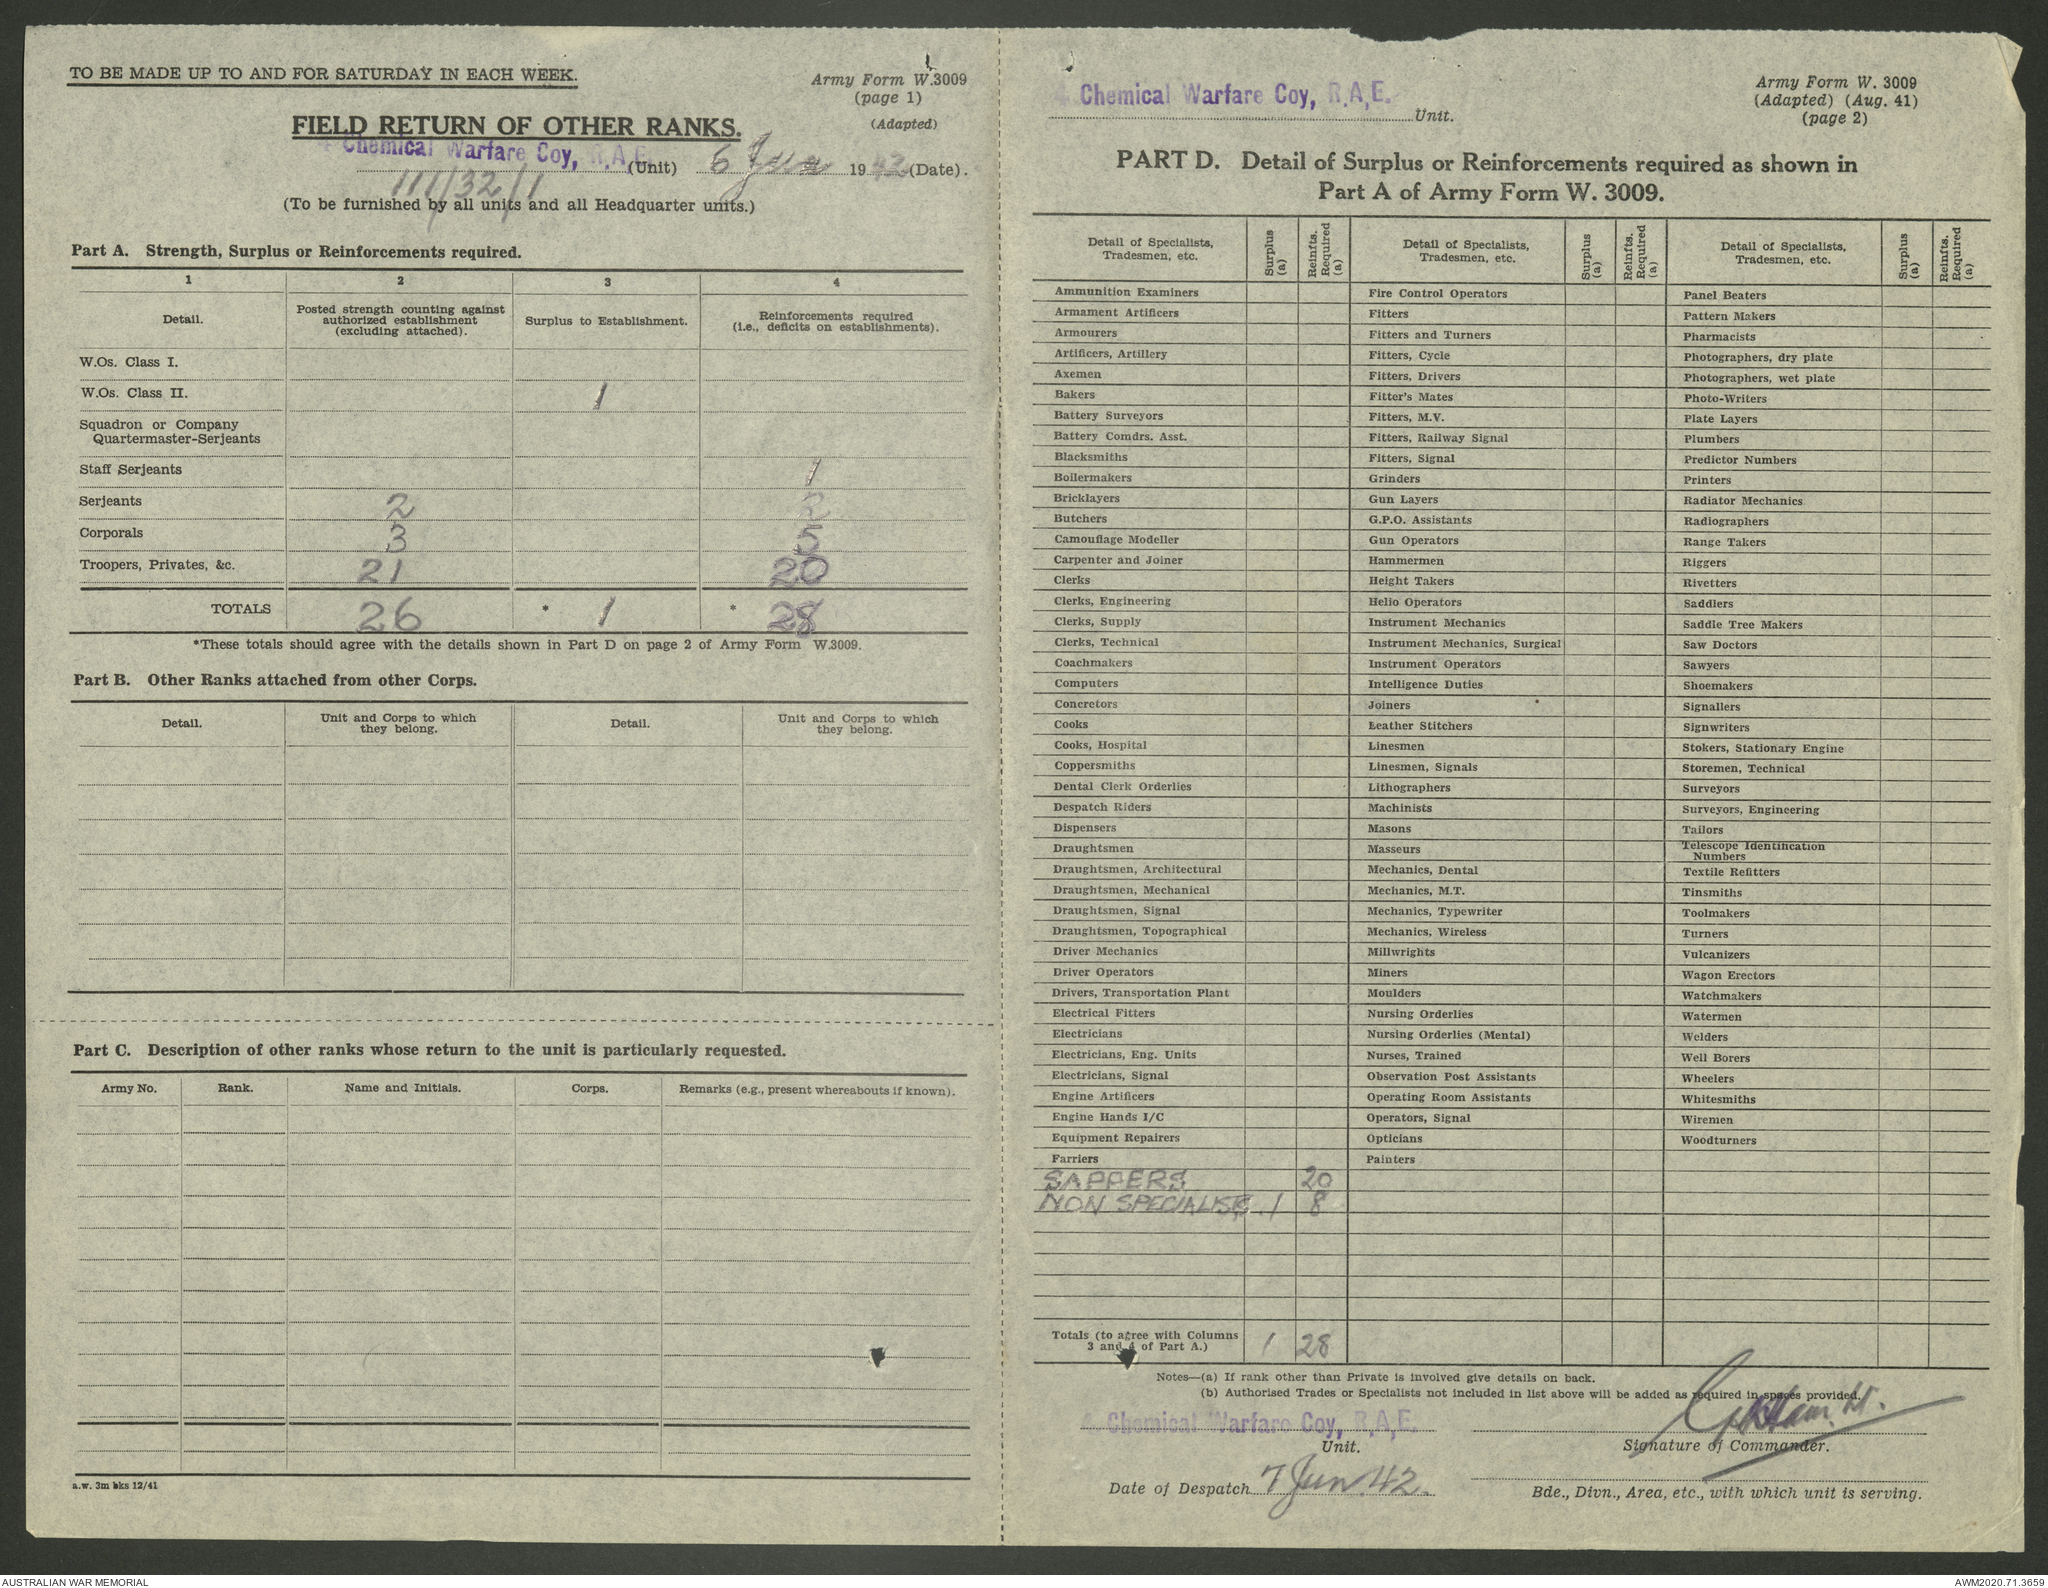 TO BE MADE UP TO AND FOR SATURDAY IN EACH WEEK.
Army Form W.3009
(page 1)
(Adapted)
FIELD RETURN OF OTHER RANKS.
4 Chemical Warfare Coy, R.A.E. (Unit) 6 Jun 1942 (Date).
111/32/1
(To be furnished by all units and all Headquarter units.)
Part A. Strength, Surplus or Reinforcements required.
1 2 3 4
Detail. Posted strength counting against authorized establishment (excluding attached). Surplus to Establishment. Reinforcements required (i.e., deficits on establishments).
W.Os. Class I.
W.Os. Class II. 1
Squadron or Company
Quartermaster-Serjeants
Staff Serjeants 1
Serjeants 2 2
Corporals 3 5
Troopers, Privates, &c. 21 20
TOTALS 26 * 1 * 28
*These totals should agree with the details shown in Part D on page 2 of Army Form W.3009.
Part B. Other Ranks attached from other Corps.
Detail. Unit and Corps to which they belong. Detail. Unit and Corps to which they belong.
Part C. Description of other ranks whose return to the unit is particularly requested.
Army No. Rank. Name and Initials. Corps. Remarks (e.g., present whereabouts if known).
a.w. 3m bks 12/41
4 Chemical Warfare Coy, R.A.E. Unit.
Army Form W. 3009
(Adapted) (Aug. 41)
(page 2)
PART D. Detail of Surplus or Reinforcements required as shown in
Part A of Army Form W. 3009.
Detail of Specialists, Tradesmen, etc. Surplus (a) Reinfts. Required (a) Detail of Specialists, Tradesmen, etc. Surplus (a) Reinfts. Required (a) Detail of Specialists, Tradesmen, etc. Surplus (a) Reinfts. Required (a)
Ammunition Examiners Fire Control Operators Panel Beaters
Armament Artificers Fitters Pattern Makers
Armourers Fitters and Turners Pharmacists
Artificers, Artillery Fitters, Cycle Photographers, dry plate
Axemen Fitters, Drivers Photographers, wet plate
Bakers Fitter's Mates Photo-Writers
Battery Surveyors Fitters, M.V. Plate Layers
Battery Comdrs. Asst. Fitters, Railway Signal Plumbers
Blacksmiths Fitters, Signal Predictor Numbers
Boilermakers Grinders Printers
Bricklayers Gun Layers Radiator Mechanics
Butchers G.P.O. Assistants Radiographers
Camouflage Modeller Gun Operators Range Takers
Carpenter and Joiner Hammermen Riggers
Clerks Height Takers Rivetters
Clerks, Engineering Helio Operators Saddlers
Clerks, Supply Instrument Mechanics Saddle Tree Makers
Clerks, Technical Instrument Mechanics, Surgical Saw Doctors
Coachmakers Instrument Operators Sawyers
Computers Intelligence Duties Shoemakers
Concretors Joiners Signallers
Cooks Leather Stitchers Signwriters
Cooks, Hospital Linesmen Stokers, Stationary Engine
Coppersmiths Linesmen, Signals Storemen, Technical
Dental Clerk Orderlies Lithographers Surveyors
Despatch Riders Machinists Surveyors, Engineering
Dispensers Masons Tailors
Draughtsmen Masseurs Telescope Identification Numbers
Draughtsmen, Architectural Mechanics, Dental Textile Refitters
Draughtsmen, Mechanical Mechanics, M.T. Tinsmiths
Draughtsmen, Signal Mechanics, Typewriter Toolmakers
Draughtsmen, Topographical Mechanics, Wireless Turners
Driver Mechanics Millwrights Vulcanizers
Driver Operators Miners Wagon Erectors
Drivers, Transportation Plant Moulders Watchmakers
Electrical Fitters Nursing Orderlies Watermen
Electricians Nursing Orderlies (Mental) Welders
Electricians, Eng. Units Nurses, Trained Well Borers
Electricians, Signal Observation Post Assistants Wheelers
Engine Artificers Operating Room Assistants Whitesmiths
Engine Hands I/C Operators, Signal Wiremen
Equipment Repairers Opticians Woodturners
Farriers Painters
SAPPERS 20
NON SPECIALISTS. 1 8
Totals (to agree with Columns 3 and 4 of Part A.) 1 28
Notes—(a) If rank other than Private is involved give details on back.
(b) Authorised Trades or Specialists not included in list above will be added as required in spaces provided.
4 Chemical Warfare Coy, R.A.E.
Unit.
Lt.
Signature of Commander.
Date of Despatch 7 Jun. 42.
Bde., Divn., Area, etc., with which unit is serving.
AUSTRALIAN WAR MEMORIAL
AWM2020.71.3659